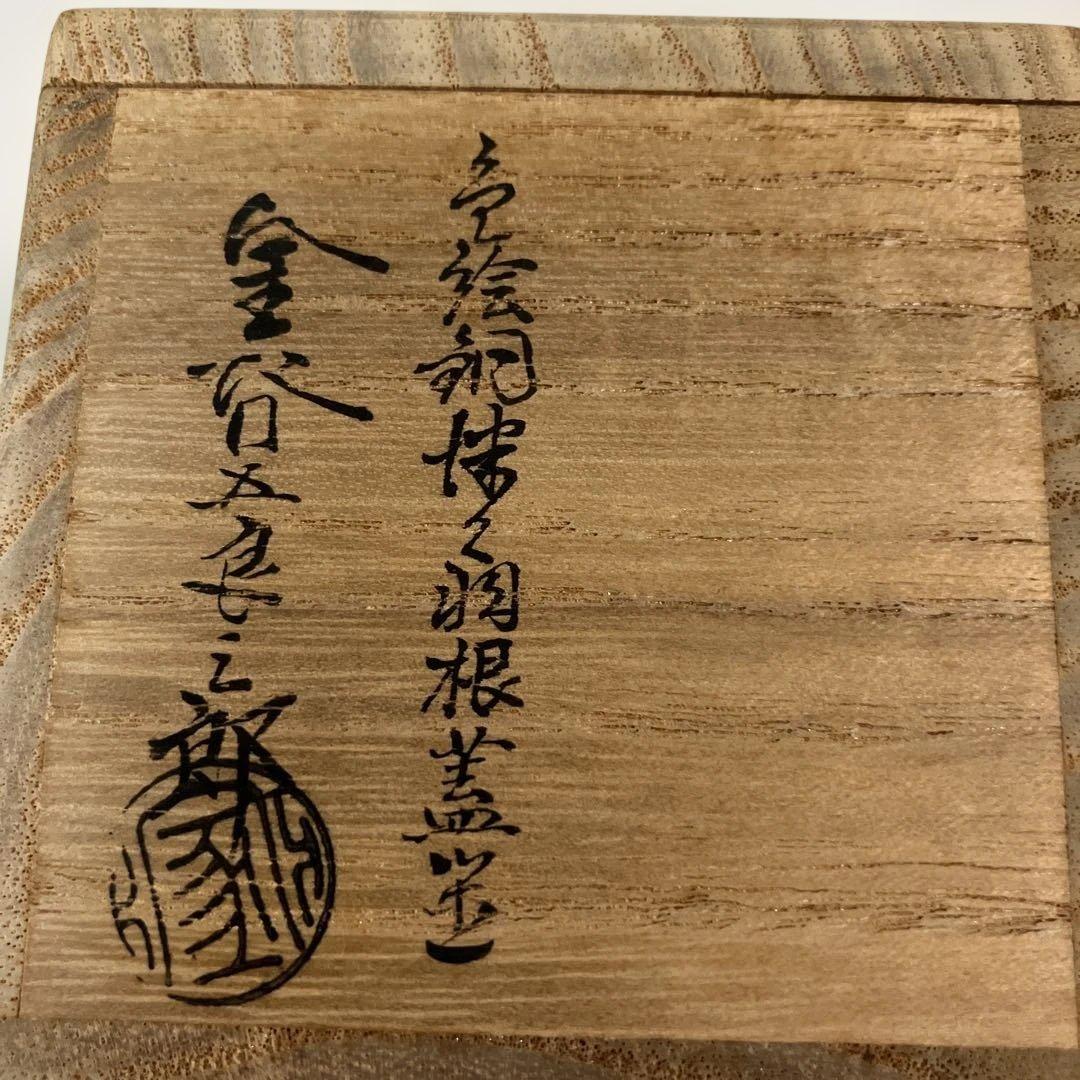 色絵銅津く羽根蓋置
金谷五良三郎